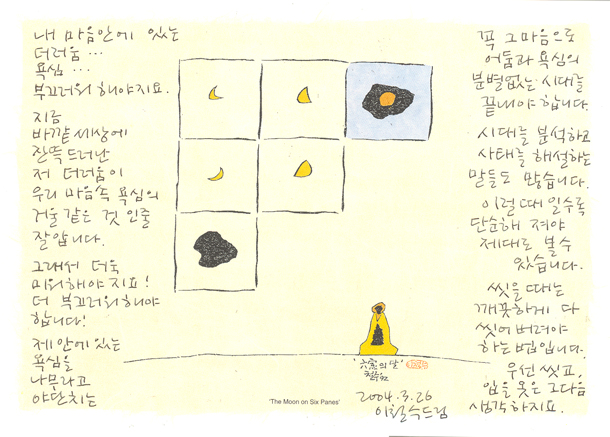 내 마음안에 있는
더러움 …
욕심 …
부끄러워 해야지요.
지금
바깥세상에
잔뜩 드러난
저 더러움이
우리 마음속 욕심의
거울 같은 것 인줄
잘압니다.
그래서 더욱
미워해야 지요!
더 부끄러워해야
합니다!
제 안에 있는
욕심을
나무라고
야단치는
꼭 그마음으로
어둠과 욕심의
분별없는 시대를
끝내야 합니다.
시대를 분석하고
사태를 해설하는
말들도 많습니다.
이럴 때 일수록
단순해 져야
제대로 볼수
있습니다.
씻을 때는
깨끗하게 다
씻어 버려야
하는 법입니다.
우선 씻고,
입을 옷은 그다음
생각하지요.
'六窓의 달'
철수
2004.3.26
이철수드림
'The Moon on Six Panes'